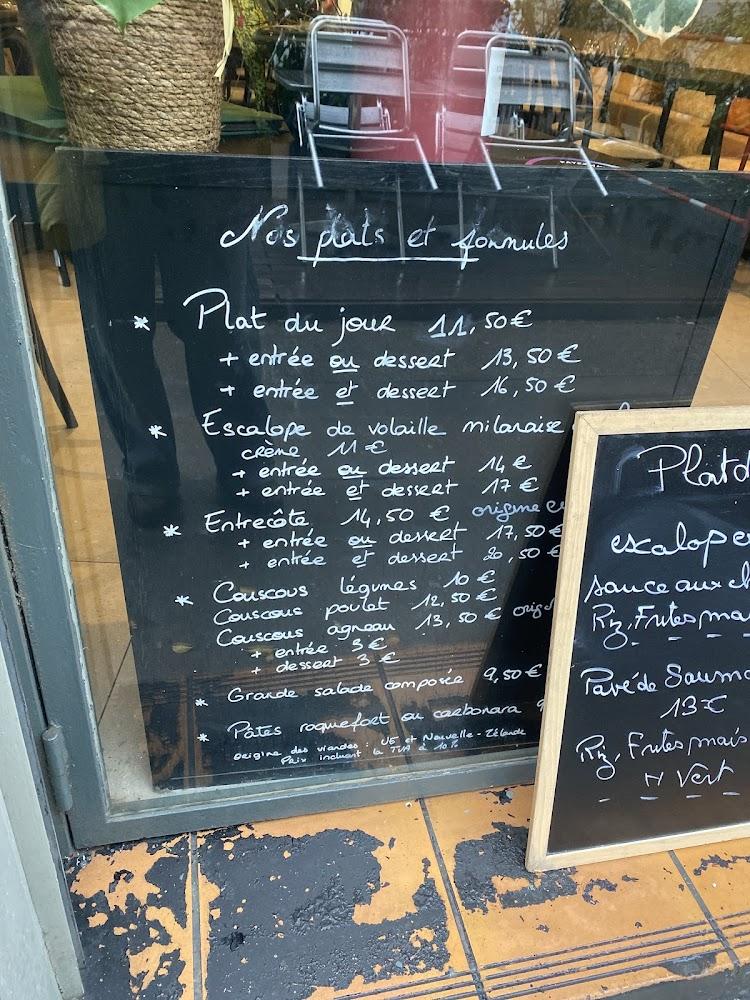 Nos plats et formules
* Plat du jour 11,50 €
+ entrée ou dessert 13,50 €
+ entrée et dessert 16,50 €
* Escalope de volaille milanaise
crème 11 €
+ entrée ou dessert 14 €
+ entrée et dessert 17 €
* Entrecôte 14,50 € origine
+ entrée ou dessert 17,50 €
+ entrée et dessert 20,50 €
* Couscous légumes 10 €
Couscous poulet 12,50 €
Couscous agneau 13,50 €
+ entrée 3 €
+ dessert 3 €
* Grande salade composée 9,50 €
* Pâtes roquefort ou carbonara
origine des viandes : UE et Nouvelle-Zélande
Prix incluant la TVA à 10%
Plat d
escalope
sauce aux
Riz, Frites
Pavé de Saumo
13 €
Riz, Frites maïs
H Vert